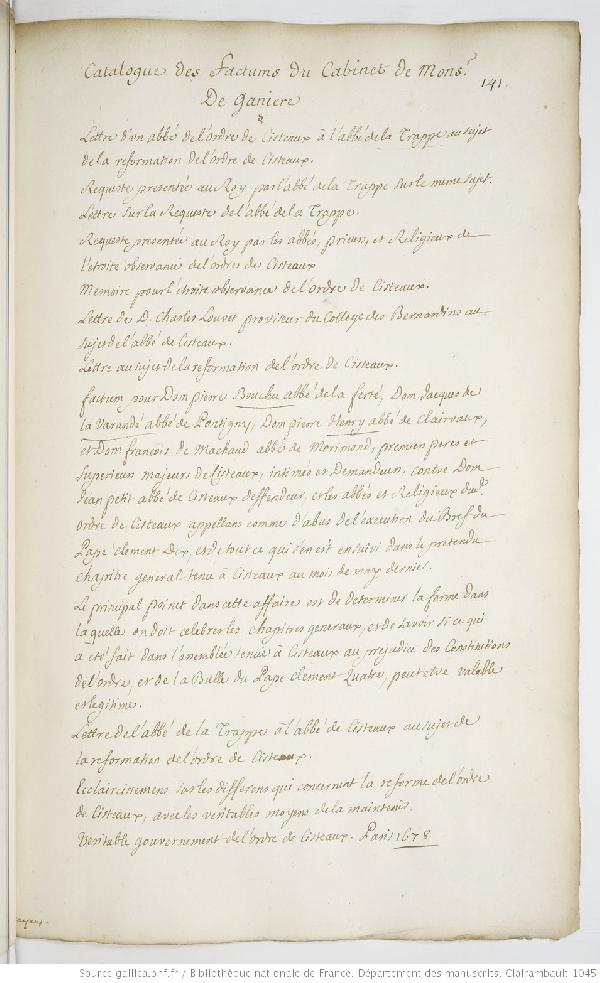 Catalogue des factums du Cabinet de Mons.r
141.
De ganiere
Lettre d'un abbé de l'ordre de Cisteaux à l'abbé de la Trappe au sujet
de la reformation de l'ordre de Cisteaux.
Requeste presentée au Roy par l'abbé de la Trappe sur le mesme sujet.
Lettre sur la Requeste de l'abbé de la Trappe.
Requeste presentée au Roy par les abbés, prieurs, et Religieux de
l'etroite observance de l'ordre de Cisteaux
Memoire pour l'étroite observance de l'ordre de Cisteaux.
Lettre de D. Charles Louvet proviseur du College des Bernardins au
sujet de l'abbé de Cisteaux.
Lettre au sujet de la reformation de l'ordre de Cisteaux.
factum pour Dom pierre Bouchu abbé de la ferté, Dom Jacques de
la Varande abbé de Pontigny, Dom pierre Henry abbé de Clairvaux,
et Dom francois de Machaud abbé de Morimond, premiers peres et
superieurs majeurs de Cisteaux, intimés et Demandeurs, contre Dom
Jean petit abbé de Cisteaux deffendeur, et les abbés et Religieux dud.
ordre de Cisteaux appellans comme d'abus de l'execution du Bref du
Pape Clement Dix, et de tout ce qui s'en est ensuivi dans le pretendu
chapitre general tenu à Cisteaux au mois de may dernier.
Le principal point dans cette affaire est de determiner la forme dans
laquelle on doit celebrer les chapitres generaux, et de savoir si ce qui
a eté fait dans l'assemblée tenue à Cisteaux au prejudice des Constitutions
de l'ordre, et de la Bulle du Pape Clement Quatre, peut etre valable
et legitime.
Lettre de l'abbé de la Trappe à l'abbé de Cisteaux au sujet de
la reformation de l'ordre de Cisteaux.
Eclaircissemens sur les differens qui concernent la reforme de l'ordre
de Cisteaux, avec les veritables moyens de la maintenir.
Veritable gouvernement de l'ordre de Cisteaux. Paris 1678
Source gallica.bnf.fr / Bibliothèque nationale de France. Département des manuscrits. Clairambault 1045